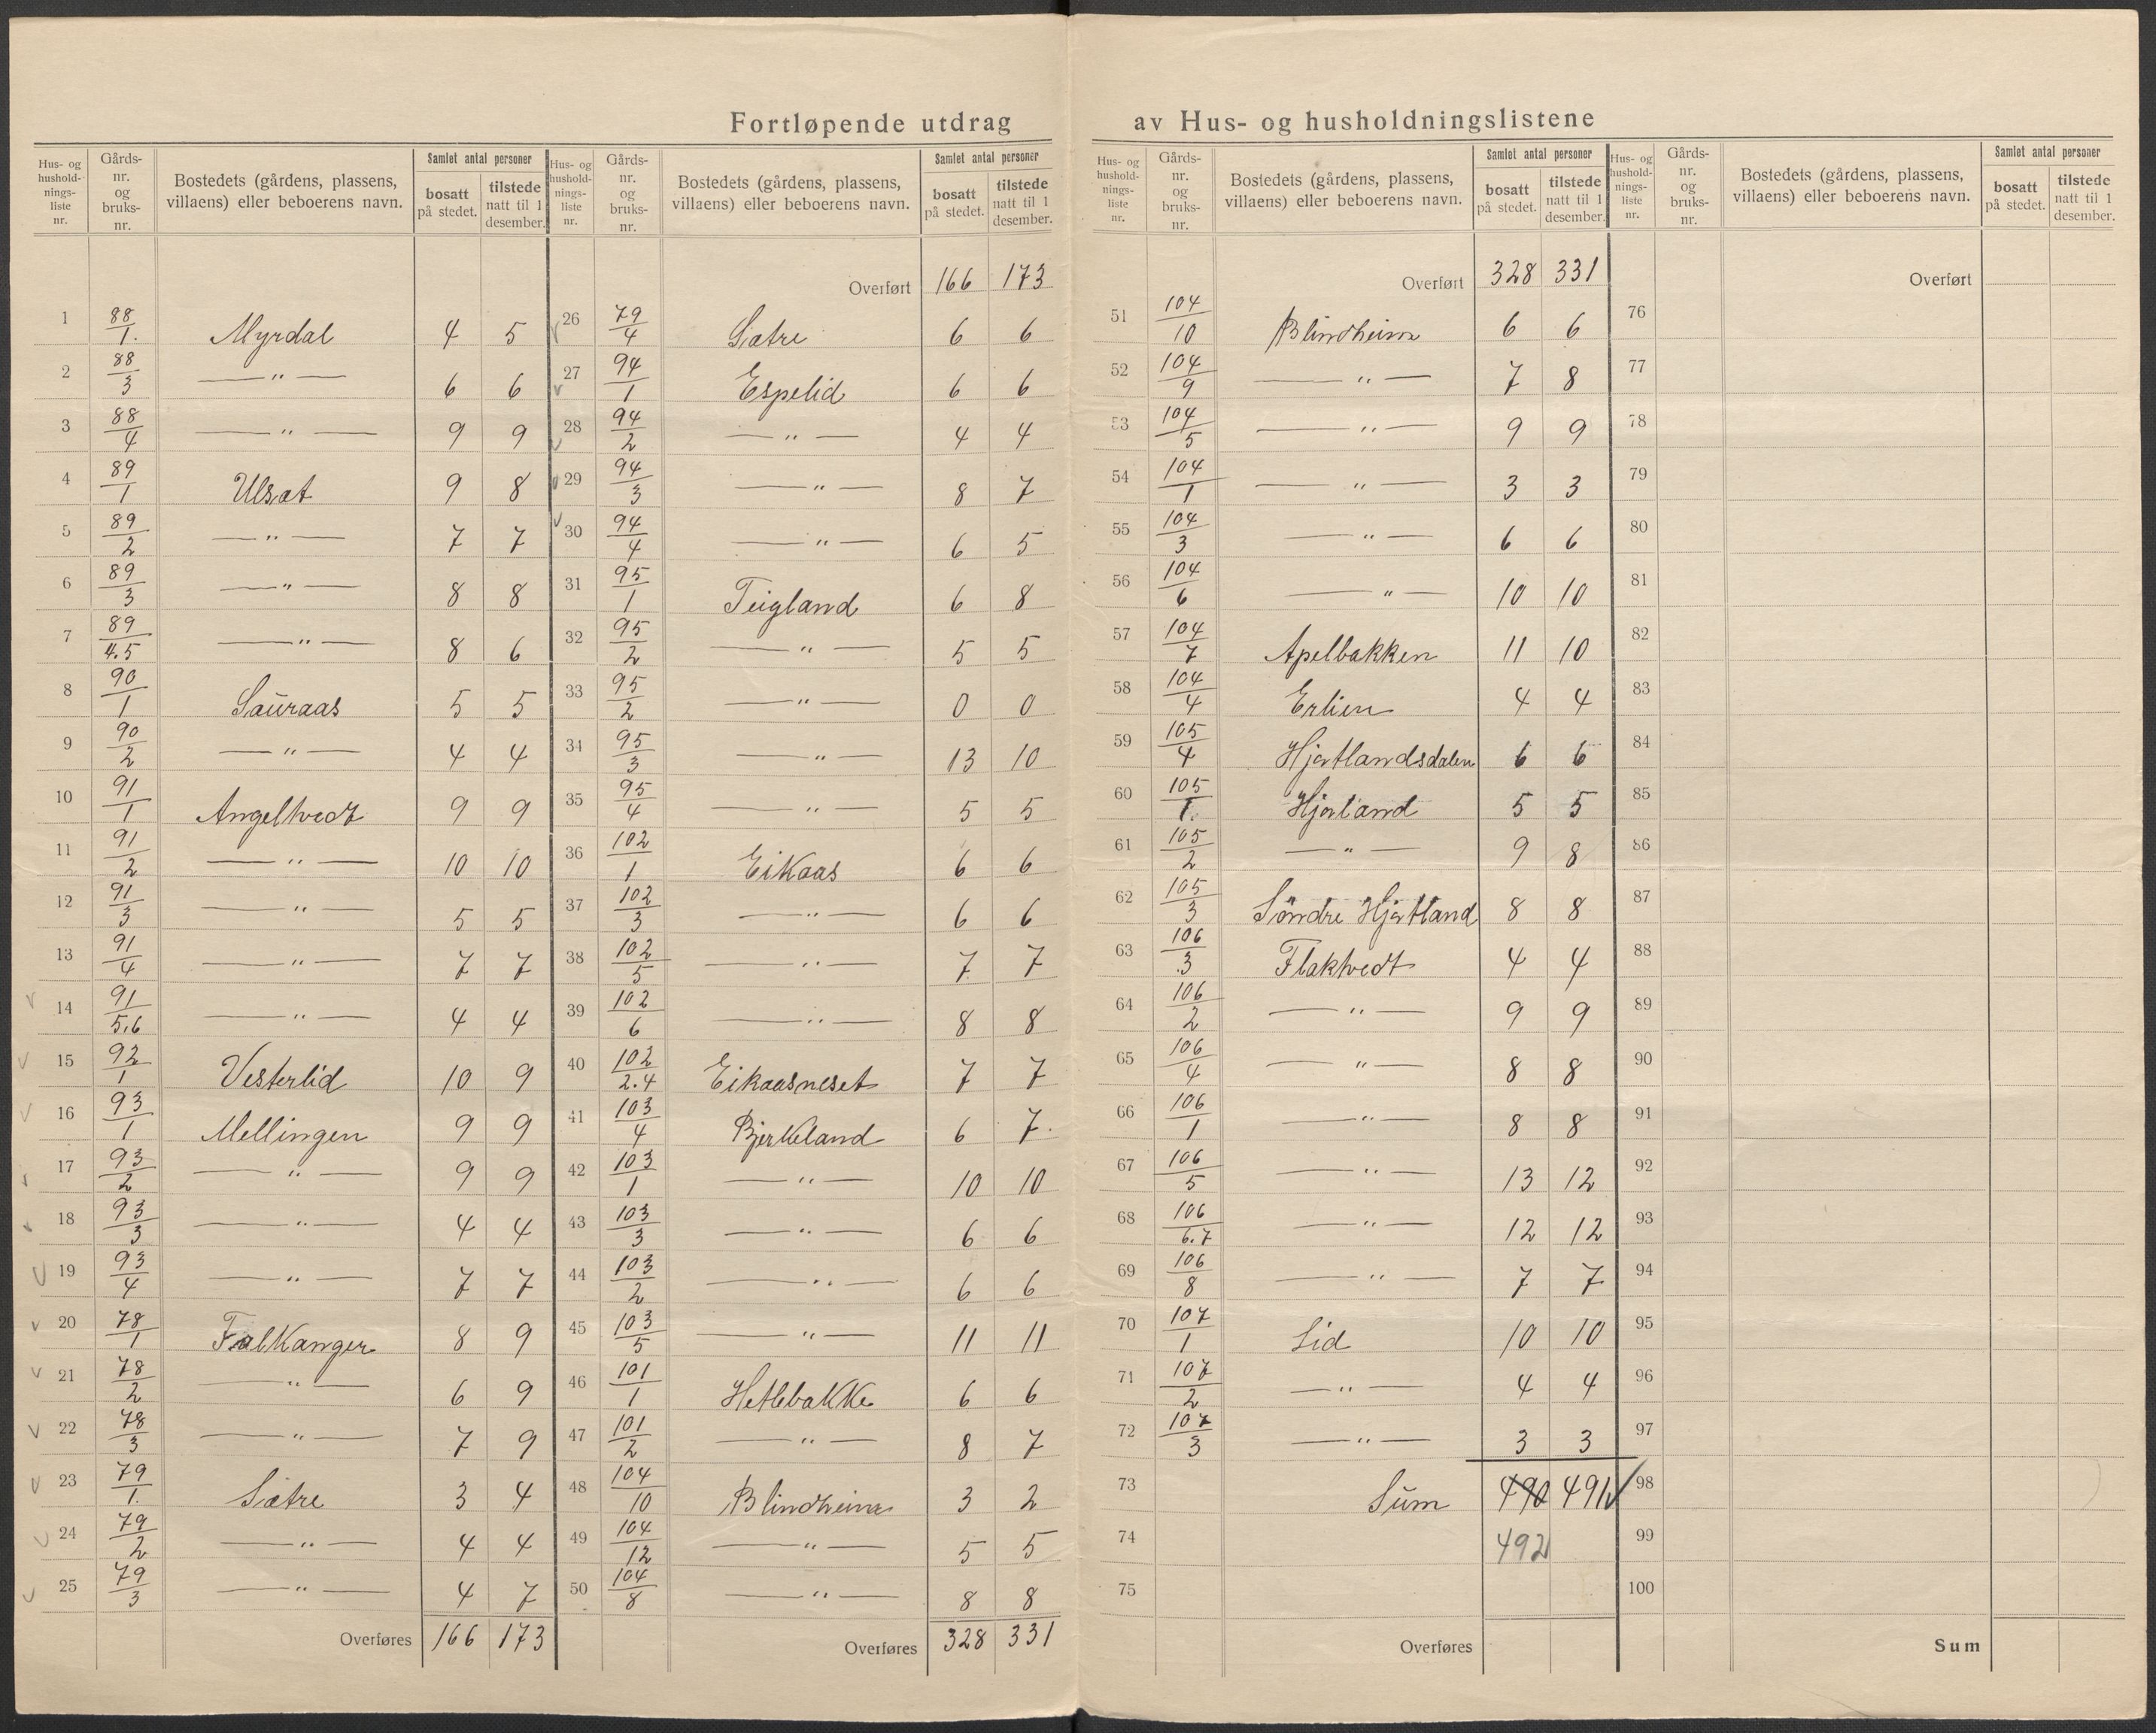 Fortløpende utdrag av Hus- og husholdningslistene
Hus- og hushold-nings-liste nr. | Gårds-nr. og bruks-nr. | Bostedets (gårdens, plassens, villaens) eller beboerens navn. | Samlet antal personer | bosatt på stedet. | tilstede natt til 1 desember.
1 88/1. Myrdal 4 5
2 88/3 —"— 6 6
3 88/4 —"— 9 9
4 89/1 Ulsat 9 8
5 89/2 —"— 7 7
6 89/3 —"— 8 8
7 89/4.5 —"— 8 6
8 90/1 Sauraas 5 5
9 90/2 —"— 4 4
10 91/1 Angeltvedt 9 9
11 91/2 —"— 10 10
12 91/3 —"— 5 5
13 91/4 —"— 7 7
14 91/5,6 —"— 4 4
15 92/1 Vesterlid 10 9
16 93/1 Mellingen 9 9
17 93/2 —"— 9 9
18 93/3 —"— 4 4
19 93/4 —"— 7 7
20 78/1 Falkanger 8 9
21 78/2 —"— 6 9
22 78/3 —"— 7 9
23 79/1. Sætre 3 4
24 79/2 —"— 4 4
25 79/3 —"— 4 7
Overføres 166 173
Hus- og hushold-nings-liste nr. | Gårds-nr. og bruks-nr. | Bostedets (gårdens, plassens, villaens) eller beboerens navn. | Samlet antal personer | bosatt på stedet. | tilstede natt til 1 desember.
Overført 166 173
26 79/4 Sætre 6 6
27 94/1 Espelid 6 6
28 94/2 —"— 4 4
29 94/3 —"— 8 7
30 94/4 —"— 6 5
31 95/1 Teigland 6 8
32 95/2 —"— 5 5
33 95/2 —"— 0 0
34 95/3 —"— 13 10
35 95/4 —"— 5 5
36 102/1 Eikaas 6 6
37 102/3 —"— 6 6
38 102/5 —"— 7 7
39 102/6 —"— 8 8
40 102/2.4 Eikaasneset 7 7
41 103/4 Bjerkeland 6 7.
42 103/1 —"— 10 10
43 103/3 —"— 6 6
44 103/2 —"— 6 6
45 103/5 —"— 11 11
46 101/1 Hetlebakke 6 6
47 101/2 —"— 8 7
48 104/10 Blindheim 3 2
49 104/12 —"— 5 5
50 104/8 —"— 8 8
Overføres 328 331
Hus- og hushold-nings-liste nr. | Gårds-nr. og bruks-nr. | Bostedets (gårdens, plassens, villaens) eller beboerens navn. | Samlet antal personer | bosatt på stedet. | tilstede natt til 1 desember.
Overført 328 331
51 104/10 Blindheim 6 6
52 104/9 —"— 7 8
53 104/5 —"— 9 9
54 104/1 —"— 3 3
55 104/3 —"— 6 6
56 104/6 —"— 10 10
57 104/7 Apelbakken 11 10
58 104/4 Erlien 4 4
59 105/4 Hjortlandsdalen 6 6
60 105/1. Hjortland 5 5
61 105/2 —"— 9 8
62 105/3 Söndre Hjortland 8 8
63 106/3 Flaktvedt 4 4
64 106/2 —"— 9 9
65 106/4 —"— 8 8
66 106/1 —"— 8 8
67 106/5 —"— 13 12
68 106/6.7 —"— 12 12
69 106/8 —"— 7 7
70 107/1 Lid 10 10
71 107/2 —"— 4 4
72 107/3 —"— 3 3
73 Sum 490 491
74 492
75
Overføres
Hus- og hushold-nings-liste nr. | Gårds-nr. og bruks-nr. | Bostedets (gårdens, plassens, villaens) eller beboerens navn. | Samlet antal personer | bosatt på stedet. | tilstede natt til 1 desember.
Overført
76
77
78
79
80
81
82
83
84
85
86
87
88
89
90
91
92
93
94
95
96
97
98
99
100
Sum